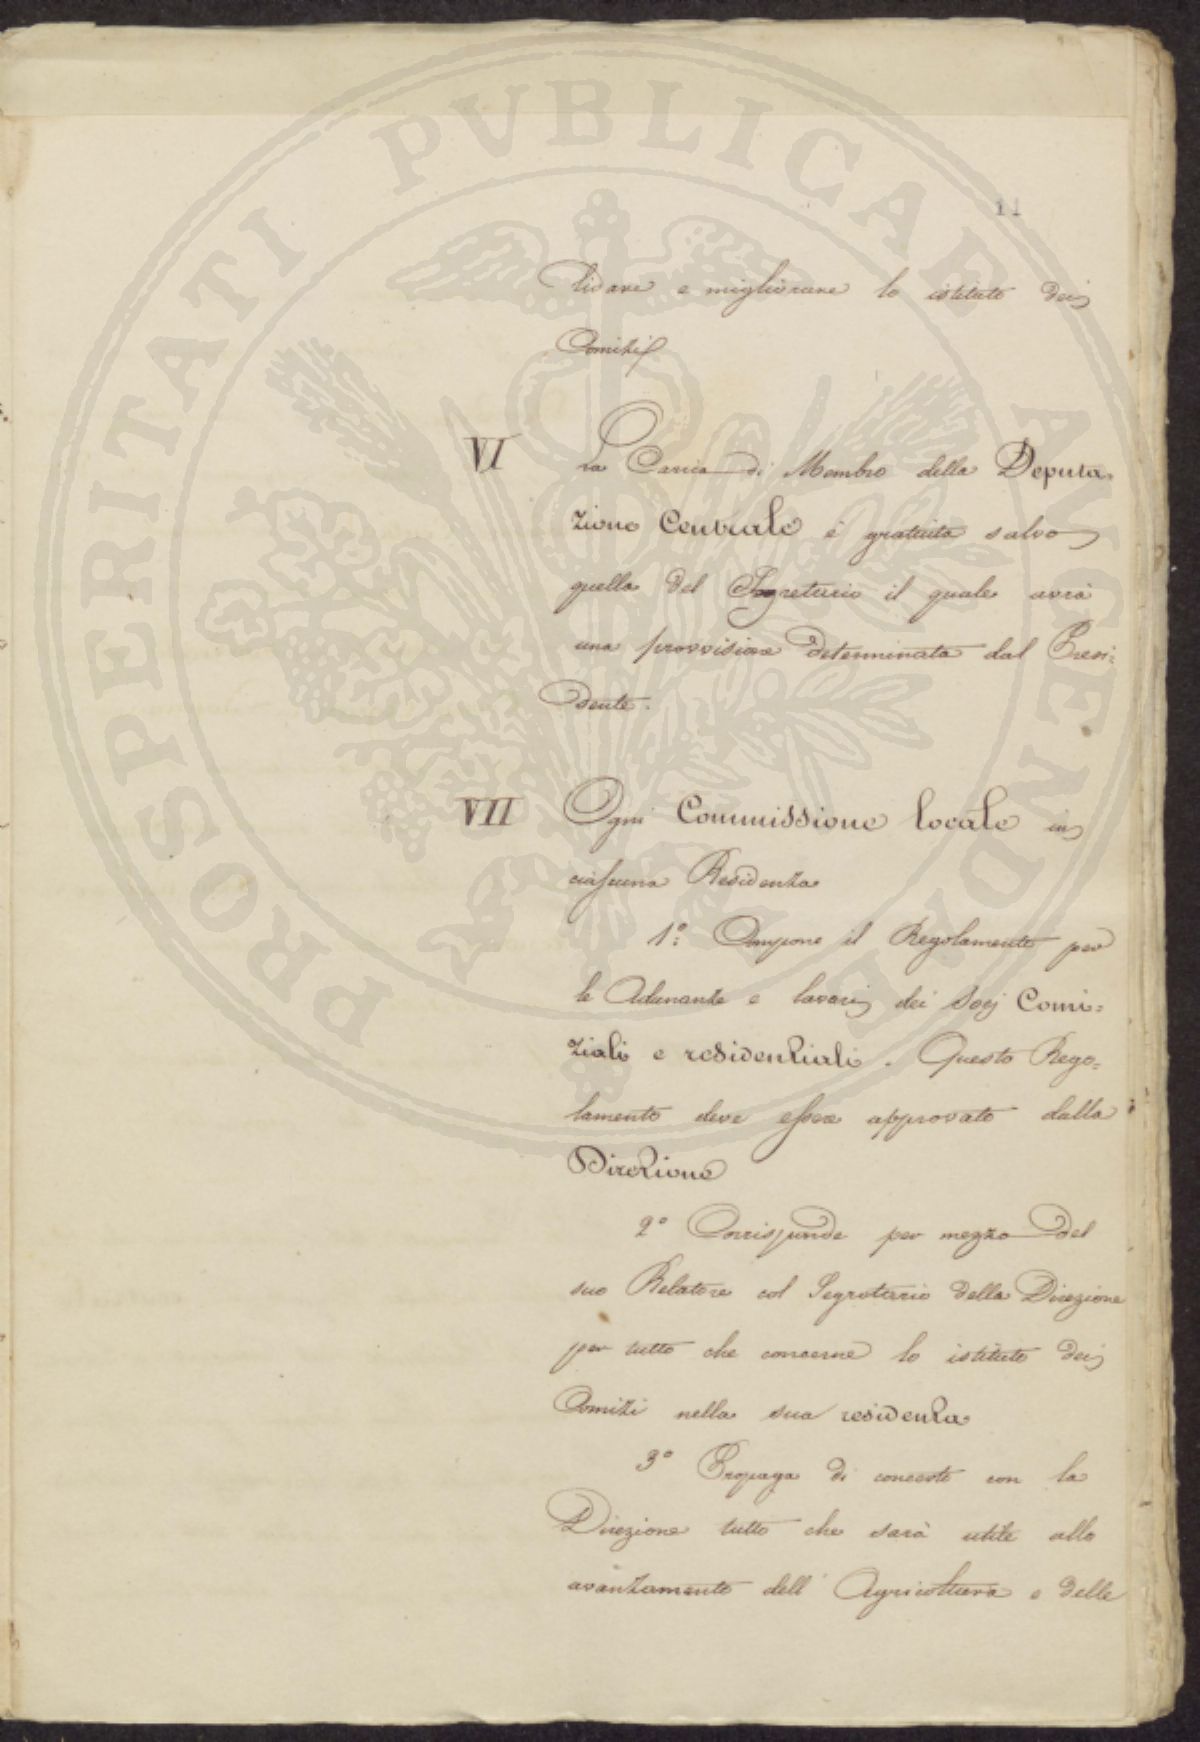 11
lidare e migliorare lo istituto dei
Comizi
VI La Carica di Membro della Deputa=
zione Centrale è gratuita salvo
quella del Segretario il quale avrà
una provvisione determinata dal Presi=
dente.
VII Ogni Commissione locale in
ciascuna Residenza
1º: Compone il Regolamento per
le Adunanze e lavori dei Socj Comi=
ziali e residenziali. Questo Rego=
lamento deve essere approvato dalla
Direzione
2º Corrisponde per mezzo del
suo Relatore col Segretario della Direzione
per tutto che concerne lo istituto dei
Comizi nella sua residenza
3º Propaga di concerto con la
Direzione tutto che sarà utile allo
avanzamento dell'Agricoltura e delle
PROSPERITATI PVBLICAE AVGENDAE